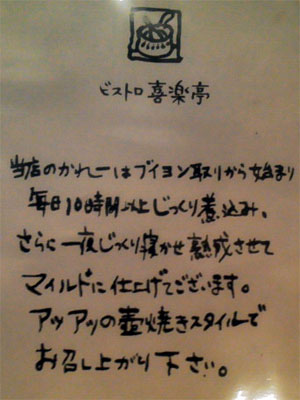 ビストロ 喜楽亭
当店のかれーはブイヨン取りから始まり
毎日10時間以上じっくり煮込み、
さらに一夜じっくり寝かせ熟成させて
マイルドに仕上げてございます。
アツアツの壷焼きスタイルで
お召し上がり下さい。